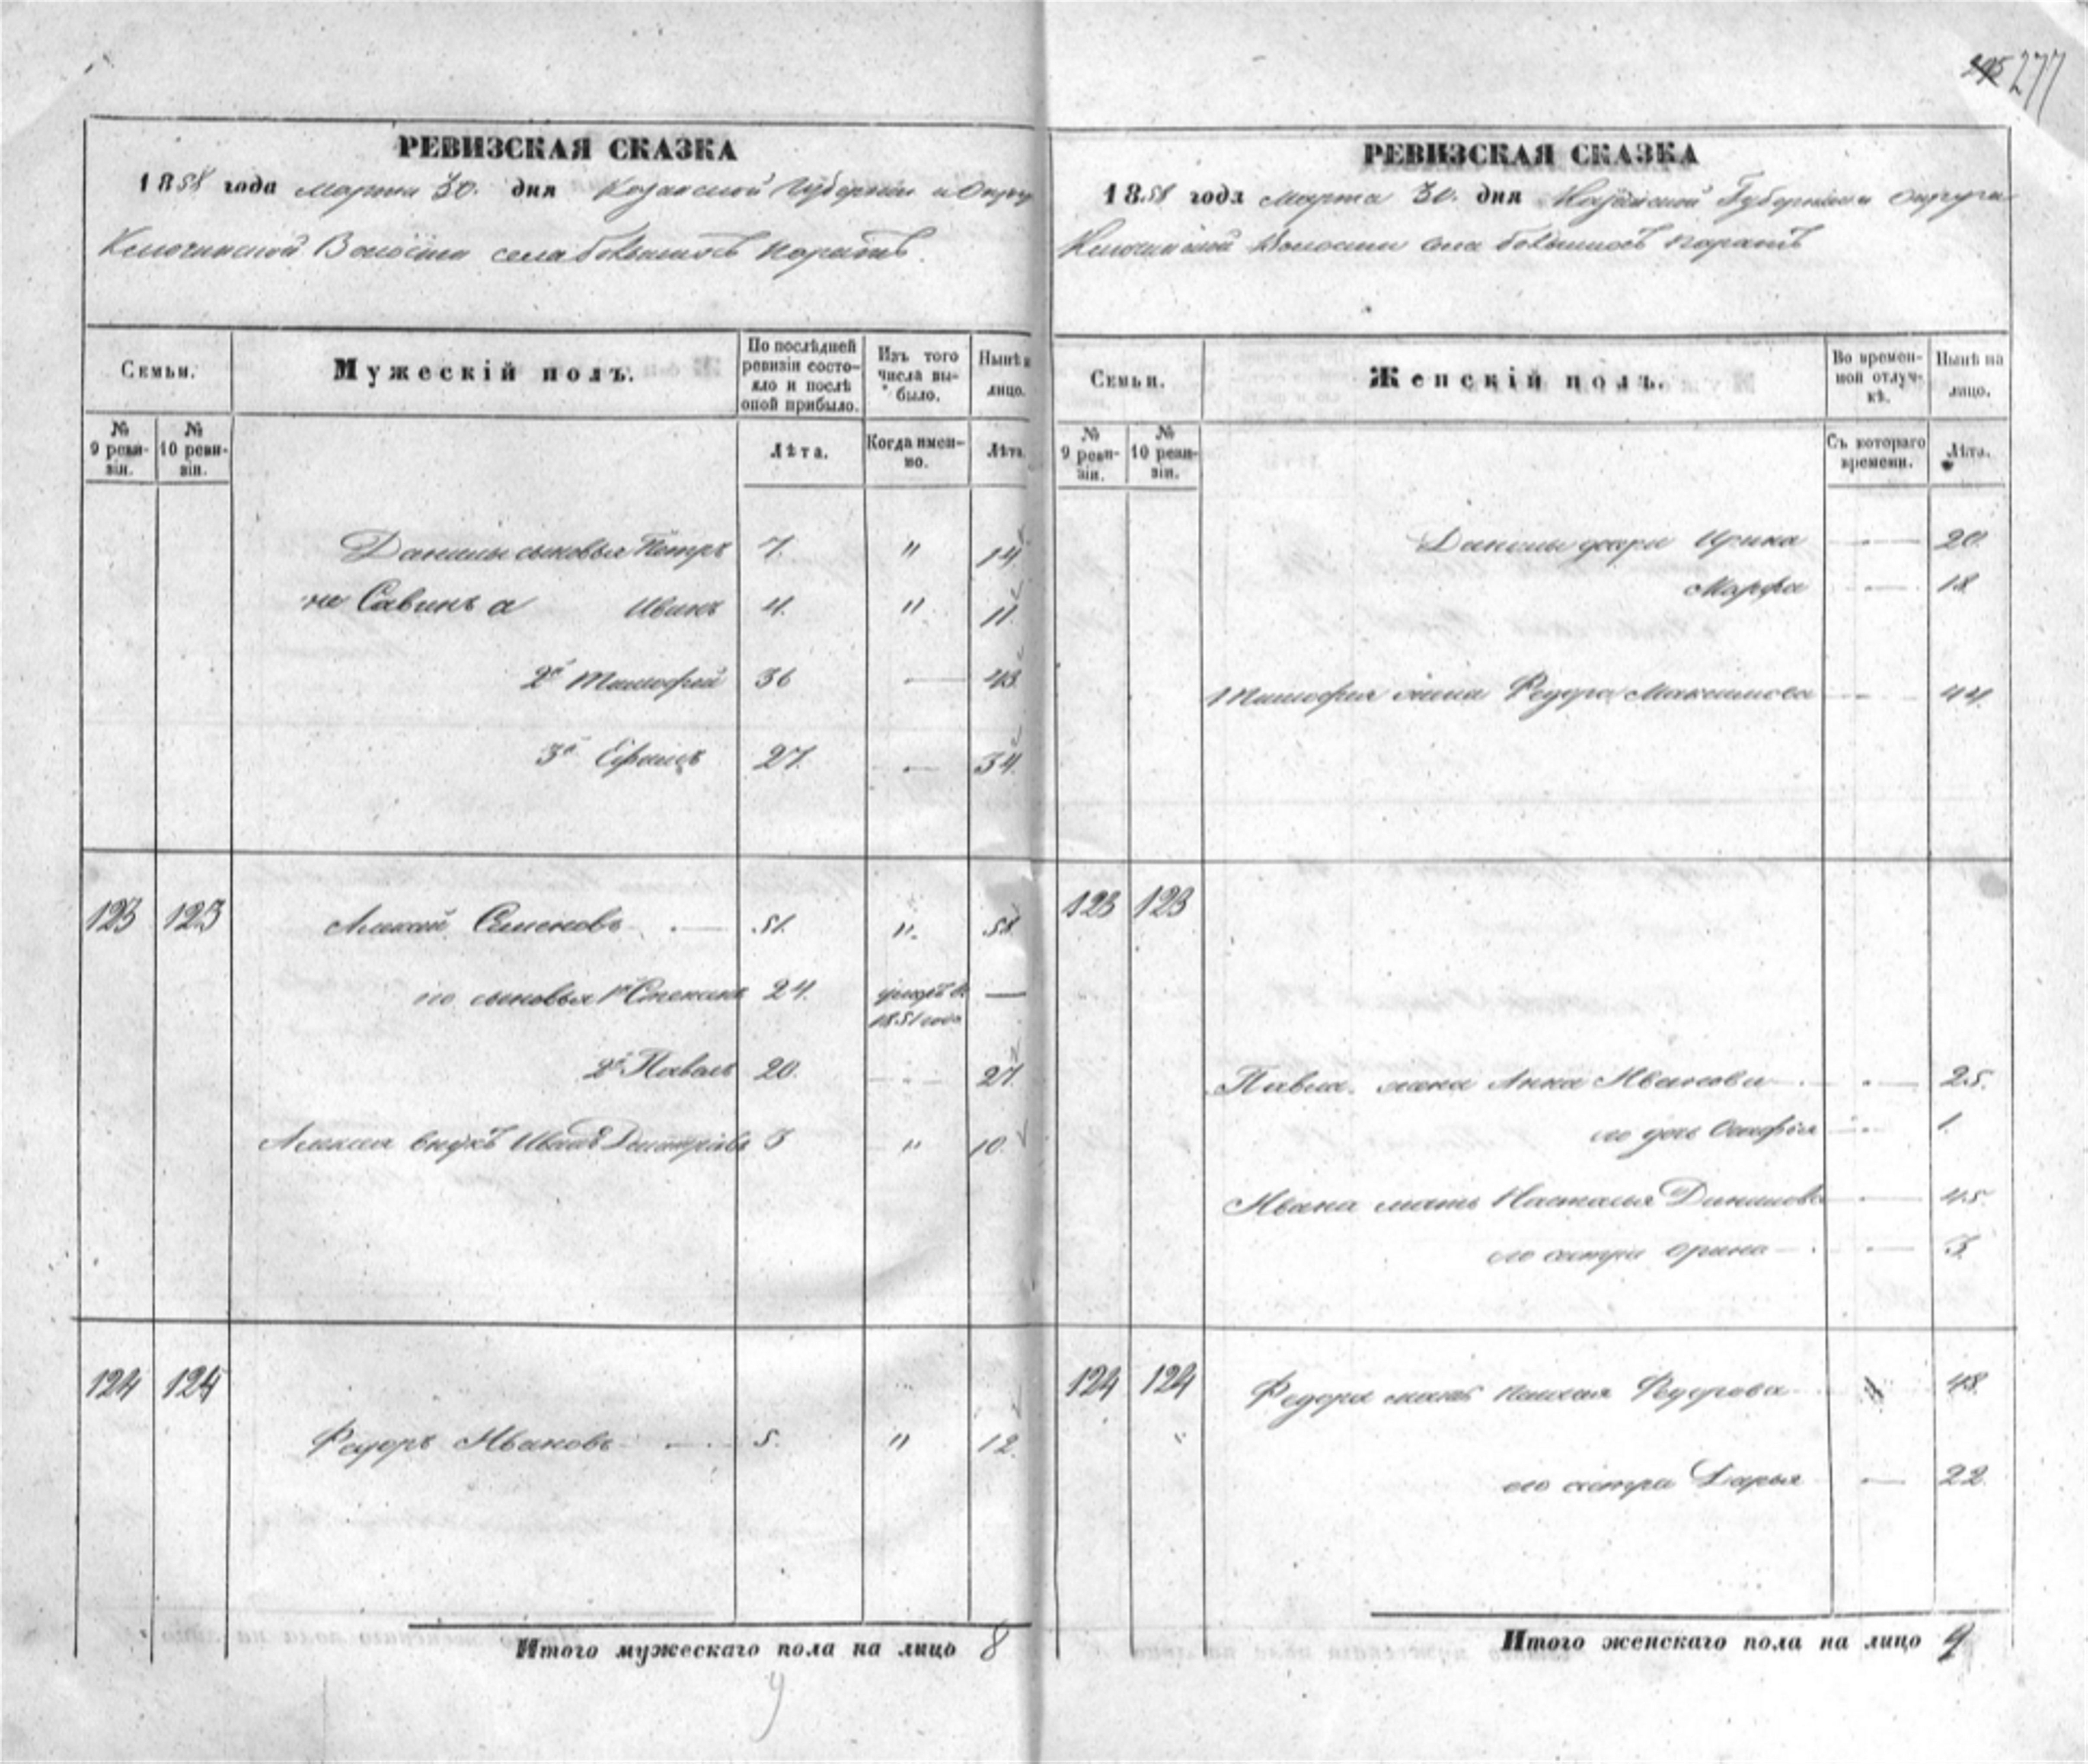 277
РЕВИЗСКАЯ СКАЗКА
1858 года Марта 30. дня Казанской Губернии и Округа
Волости села Большихъ
Семьи.
Мужескій полъ.
По послѣдней ревизіи состояло и послѣ оной прибыло.
Изъ того числа выбыло.
Нынѣ на лицо.
№ 9 ревизіи.
№ 10 ревизіи.
Лѣта.
Когда именно.
Лѣта
Данилы сыновья Петръ 7. " 14.
не Савинъ а Иванъ 4. " 11.
2й Тимофей 36 — 43.
3й 27. — 34.
123 123 Алексей Семеновъ — 51. " 58.
его сыновья 1й Степанъ 24. 1851 года —
2й Павелъ 20. — 27.
Алексея внукъ Иванъ Дмитріевъ 3 " 10.
124 124
Федоръ Ивановъ — 5. " 12.
Итого мужескаго пола на лицо 8
9
РЕВИЗСКАЯ СКАЗКА
1858 года Марта 30. дня Казанской Губерніи и Округа
Волости села Большихъ
Семьи.
Женскій полъ.
Во временной отлучкѣ.
Нынѣ на лицо.
№ 9 ревизіи.
№ 10 ревизіи.
Съ котораго времени.
Лѣта.
Данилы дочри Ирина — 20.
Марфа — 18.
Тимофея жена Федора Максимова — 44.
123 123
Павла жена Анна Иванова — 25.
его дочь — 1.
Ивана мать Настасья Данилова — 45.
его сестра Орина — 3.
124 124 Федора мать Федорова 48.
его сестра Дарья — 22
Итого женскаго пола на лицо 9